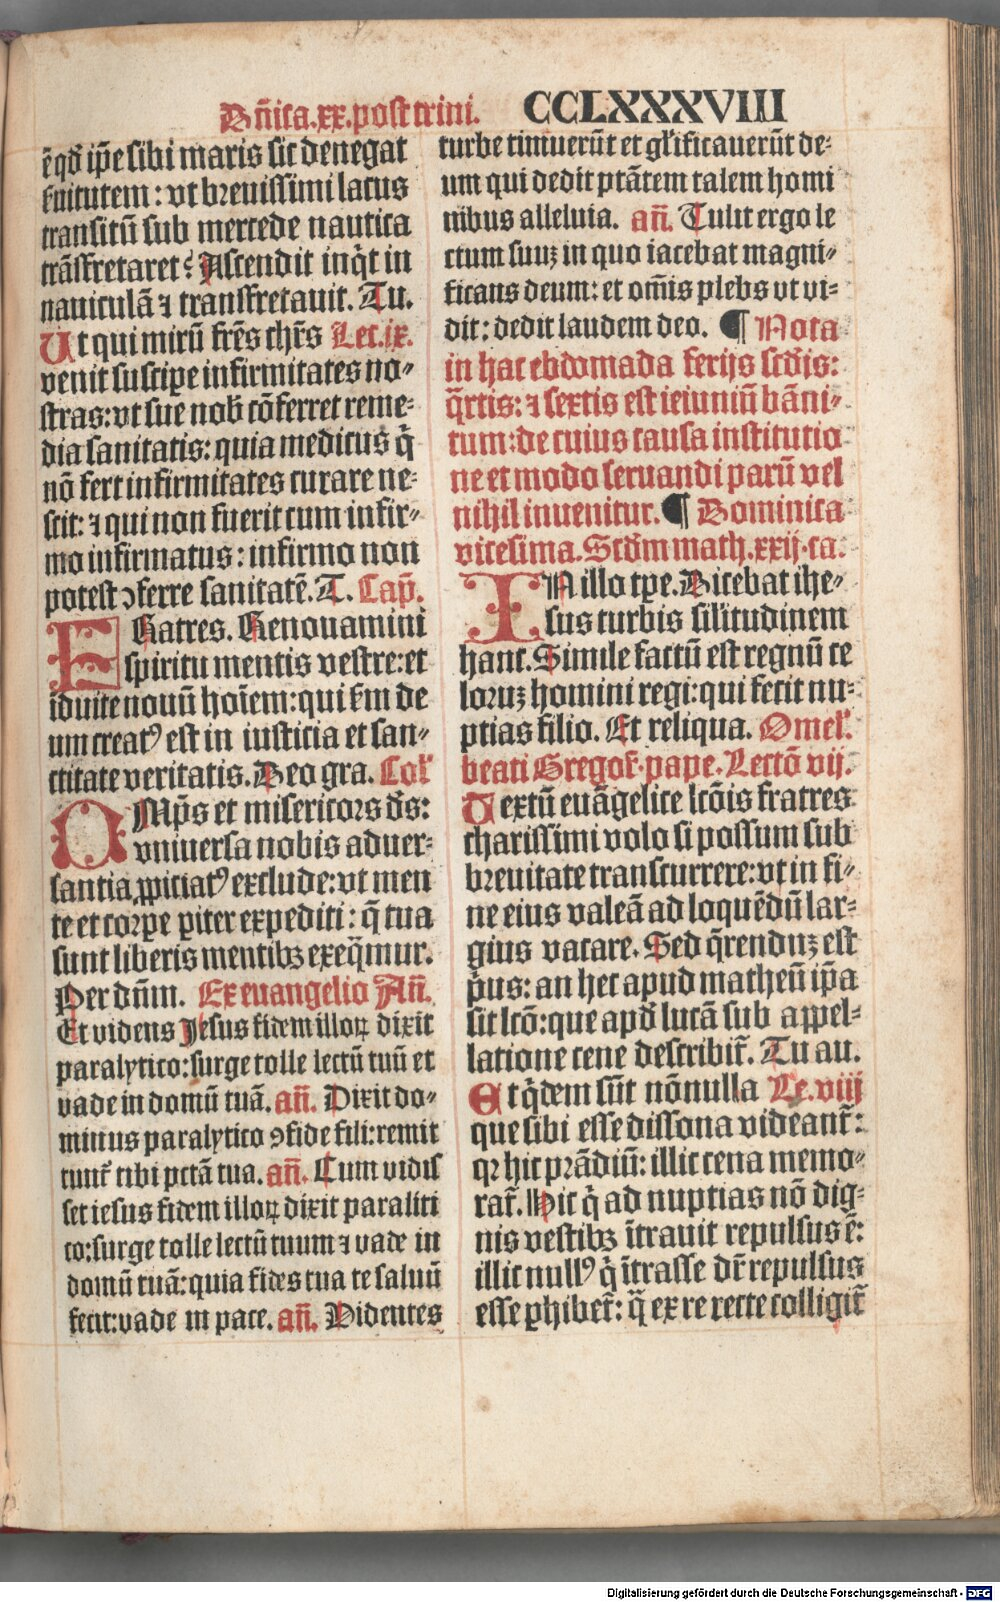 Dñica.xx.post trini. CCLXXXVIII
ēqd̄ ip̄e sibi maris sic denegat
ẜuitutem: vt breuissimi latus
transitū sub mercede nautica
trāsfretaret? Ascendit inq̄t in
nauiculā ⁊ transfretauit. Tu.
Ut qui mirū fr̄es chr̄s Lec.ix.
venit suscipe infirmitates no-
stras: vt sue nob̄ cōferret reme-
dia sanitatis: quia medicus q̄
nō fert infirmitates curare ne-
scit: ⁊ qui non fuerit cum infir-
mo infirmatus: infirmo non
potest ɔferre sanitatē. T. Cap̄.
FRatres. Renouamini
spiritu mentis vestre: et
īduite nouū hoīem: qui ẜm de
um creatꝰ est in iusticia et san-
ctitate veritatis. Deo gra. Col̄
OMp̄s et misericors ds̄:
vniuersa nobis aduer-
santia ꝓpiciatꝰ exclude: vt men
te et corꝑe ꝑiter expediti: q̄ tua
sunt liberis mentibꝫ exeq̄mur.
Per dn̄m. Ex euangelio Añ.
Et videns Jesus fidem illoꝝ dixit
paralytico: surge tolle lectū tuū et
vade in domū tuā. añ. Dixit do-
minus paralytico ɔfide fili: remit
tunt᷑ tibi pctā tua. añ. Cum vidis
set iesus fidem illoꝝ dixit paraliti
co: surge tolle lectū tuum ⁊ vade in
domū tuā: quia fides tua te saluū
fecit: vade in pace. añ. Videntes
turbe timuerūt et gl̄ificauerūt de-
um qui dedit ptātem talem homi
nibus alleluia. añ. Tulit ergo le
ctum suuꝫ in quo iacebat magni-
ficans deum: et om̄is plebs vt vi-
dit: dedit laudem deo. ¶ Nota
in hac ebdomada ferijs scd̄is:
q̄rtis: ⁊ sextis est ieiuniū bāni-
tum: de cuius causa institutio
ne et modo seruandi parū vel
nihil inuenitur. ¶ Dominica
vicesima. Scd̄m math.xxij.ca.
IN illo tpe. Dicebat ihe-
sus turbis sil̄itudinem
hanc. Simile factū est regnū ce
loruꝫ homini regi: qui fecit nu-
ptias filio. Et reliqua. Omel̄.
beati Gregor̄ pape. Lectō vij.
Textū euāgelice lcōis fratres
charissimi volo si possum sub
breuitate transcurrere: vt in fi-
ne eius valeā ad loquēdū lar-
gius vacare. Sed q̄renduꝫ est
p̄us: an hec apud matheū ip̄a
sit lcō: que apd̄ lucā sub appel-
latione cene describit᷑. Tu au.
Et q̄dem sūt nōnulla Le.viij
que sibi esse dissona videant᷑:
qꝛ hic prādiū: illic cena memo-
rat᷑. Hic q̄ ad nuptias nō dig-
nis vestibꝫ ītrauit repulsus ē:
illic nullꝰ q̄ ītrasse dr̄ repulsus
esse ꝑhibet᷑: q̄ ex re recte colligit᷑
Digitalisierung gefördert durch die Deutsche Forschungsgemeinschaft - DFG